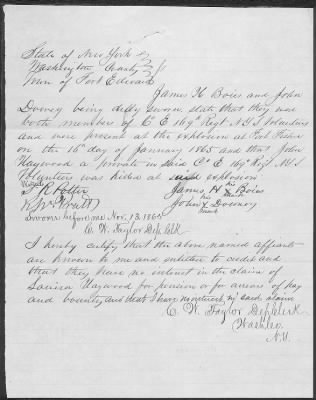 State of New York
Washington County } ss
Town of Fort Edward
James H Bois and John
Downey being duly sworn state that they were
both members of Co E 169th Regt N.Y.S Volunteers
and were present at the explosion at Fort Fisher
on the 16th day of January 1865 and that John
Haywood a private in said Co E 169th Regt N.Y.S
Volunteers was killed at said explosion
Witness
James H his mark Bois
John X his mark Downey
Sworn before me Nov. 13. 1865
C. W. Taylor Dep. Clk
I hereby certify that the above named affiants
are known to me and entitled to credit and
that they have no interest in the claim of
Louisa Haywood for pension or for arrears of pay
and bounty and that I have no interest in said claim
C. W. Taylor Dep Clerk
Wash Co.
N.Y.